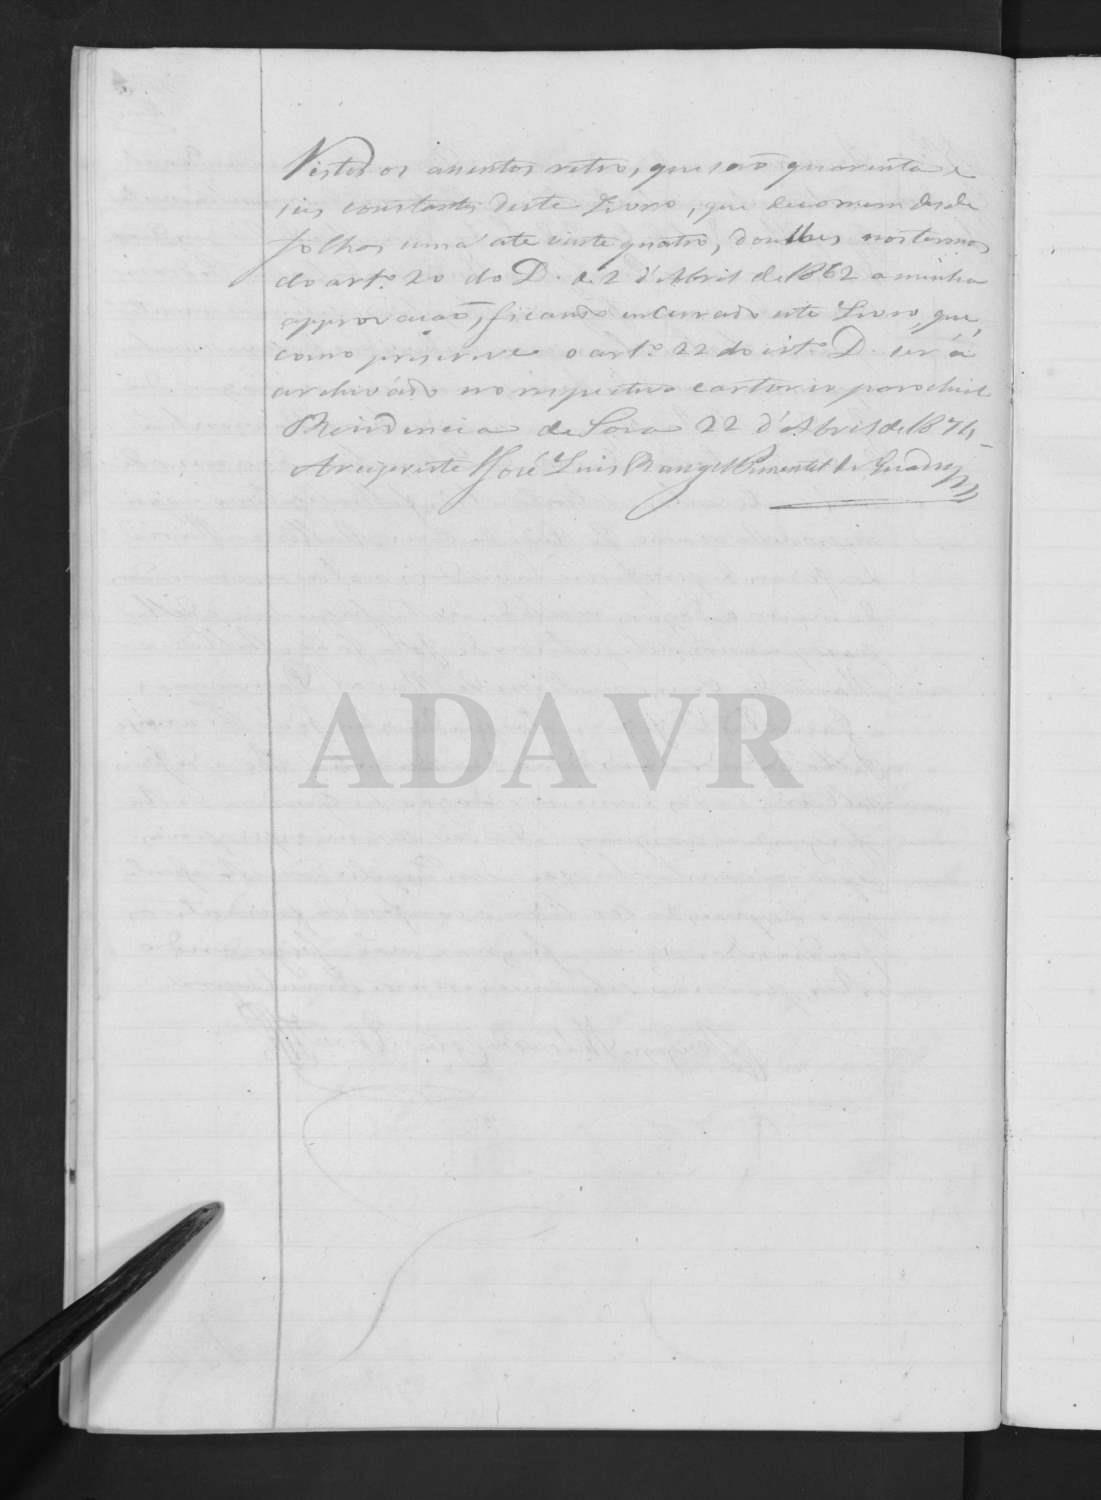 Vistos os assentos retro, que são quarenta e
seis constantes deste Livro, que decorrem desde
folhas uma até vinte quatro, dou lhes nos termos
do artº 20 do D. de 2 d'Abril de 1862 a minha
approvação, ficando encerrado este Livro, que,
como prescreve o artº 22 do cit.º D. será
archivádo no respectivo cartorio parochial
Residencia de 22 d'Abril de 1874
Arcipreste José Luis Rangel Pimentel de
ADAVR